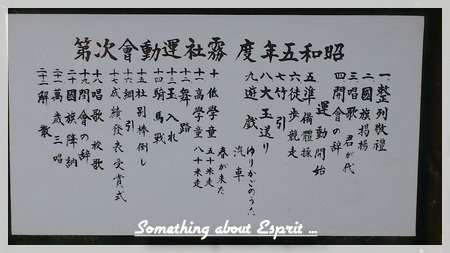 昭和五年度 霧社運動會次第
一 整列敬禮
二 國旗掲揚
三 唱歌 君が代
四 開會の辞
運動開始
五 準備體操
六 徒歩競走
七 竹引
八 大玉送り
九 遊戯
ゆりかごのうた
汽車
春が来た
十 低學童 五十米走
十一 高學童 八十米走
十二 舞踏
十三 玉入れ
十四 騎馬戰
十五 社別棒倒し
十六 綱引
十七 成績發表受賞式
十八 唱歌 校歌
十九 閉會の辞
二十 國旗降納
二十一 萬歳三唱
二十二 解散
Something about Esprit ...